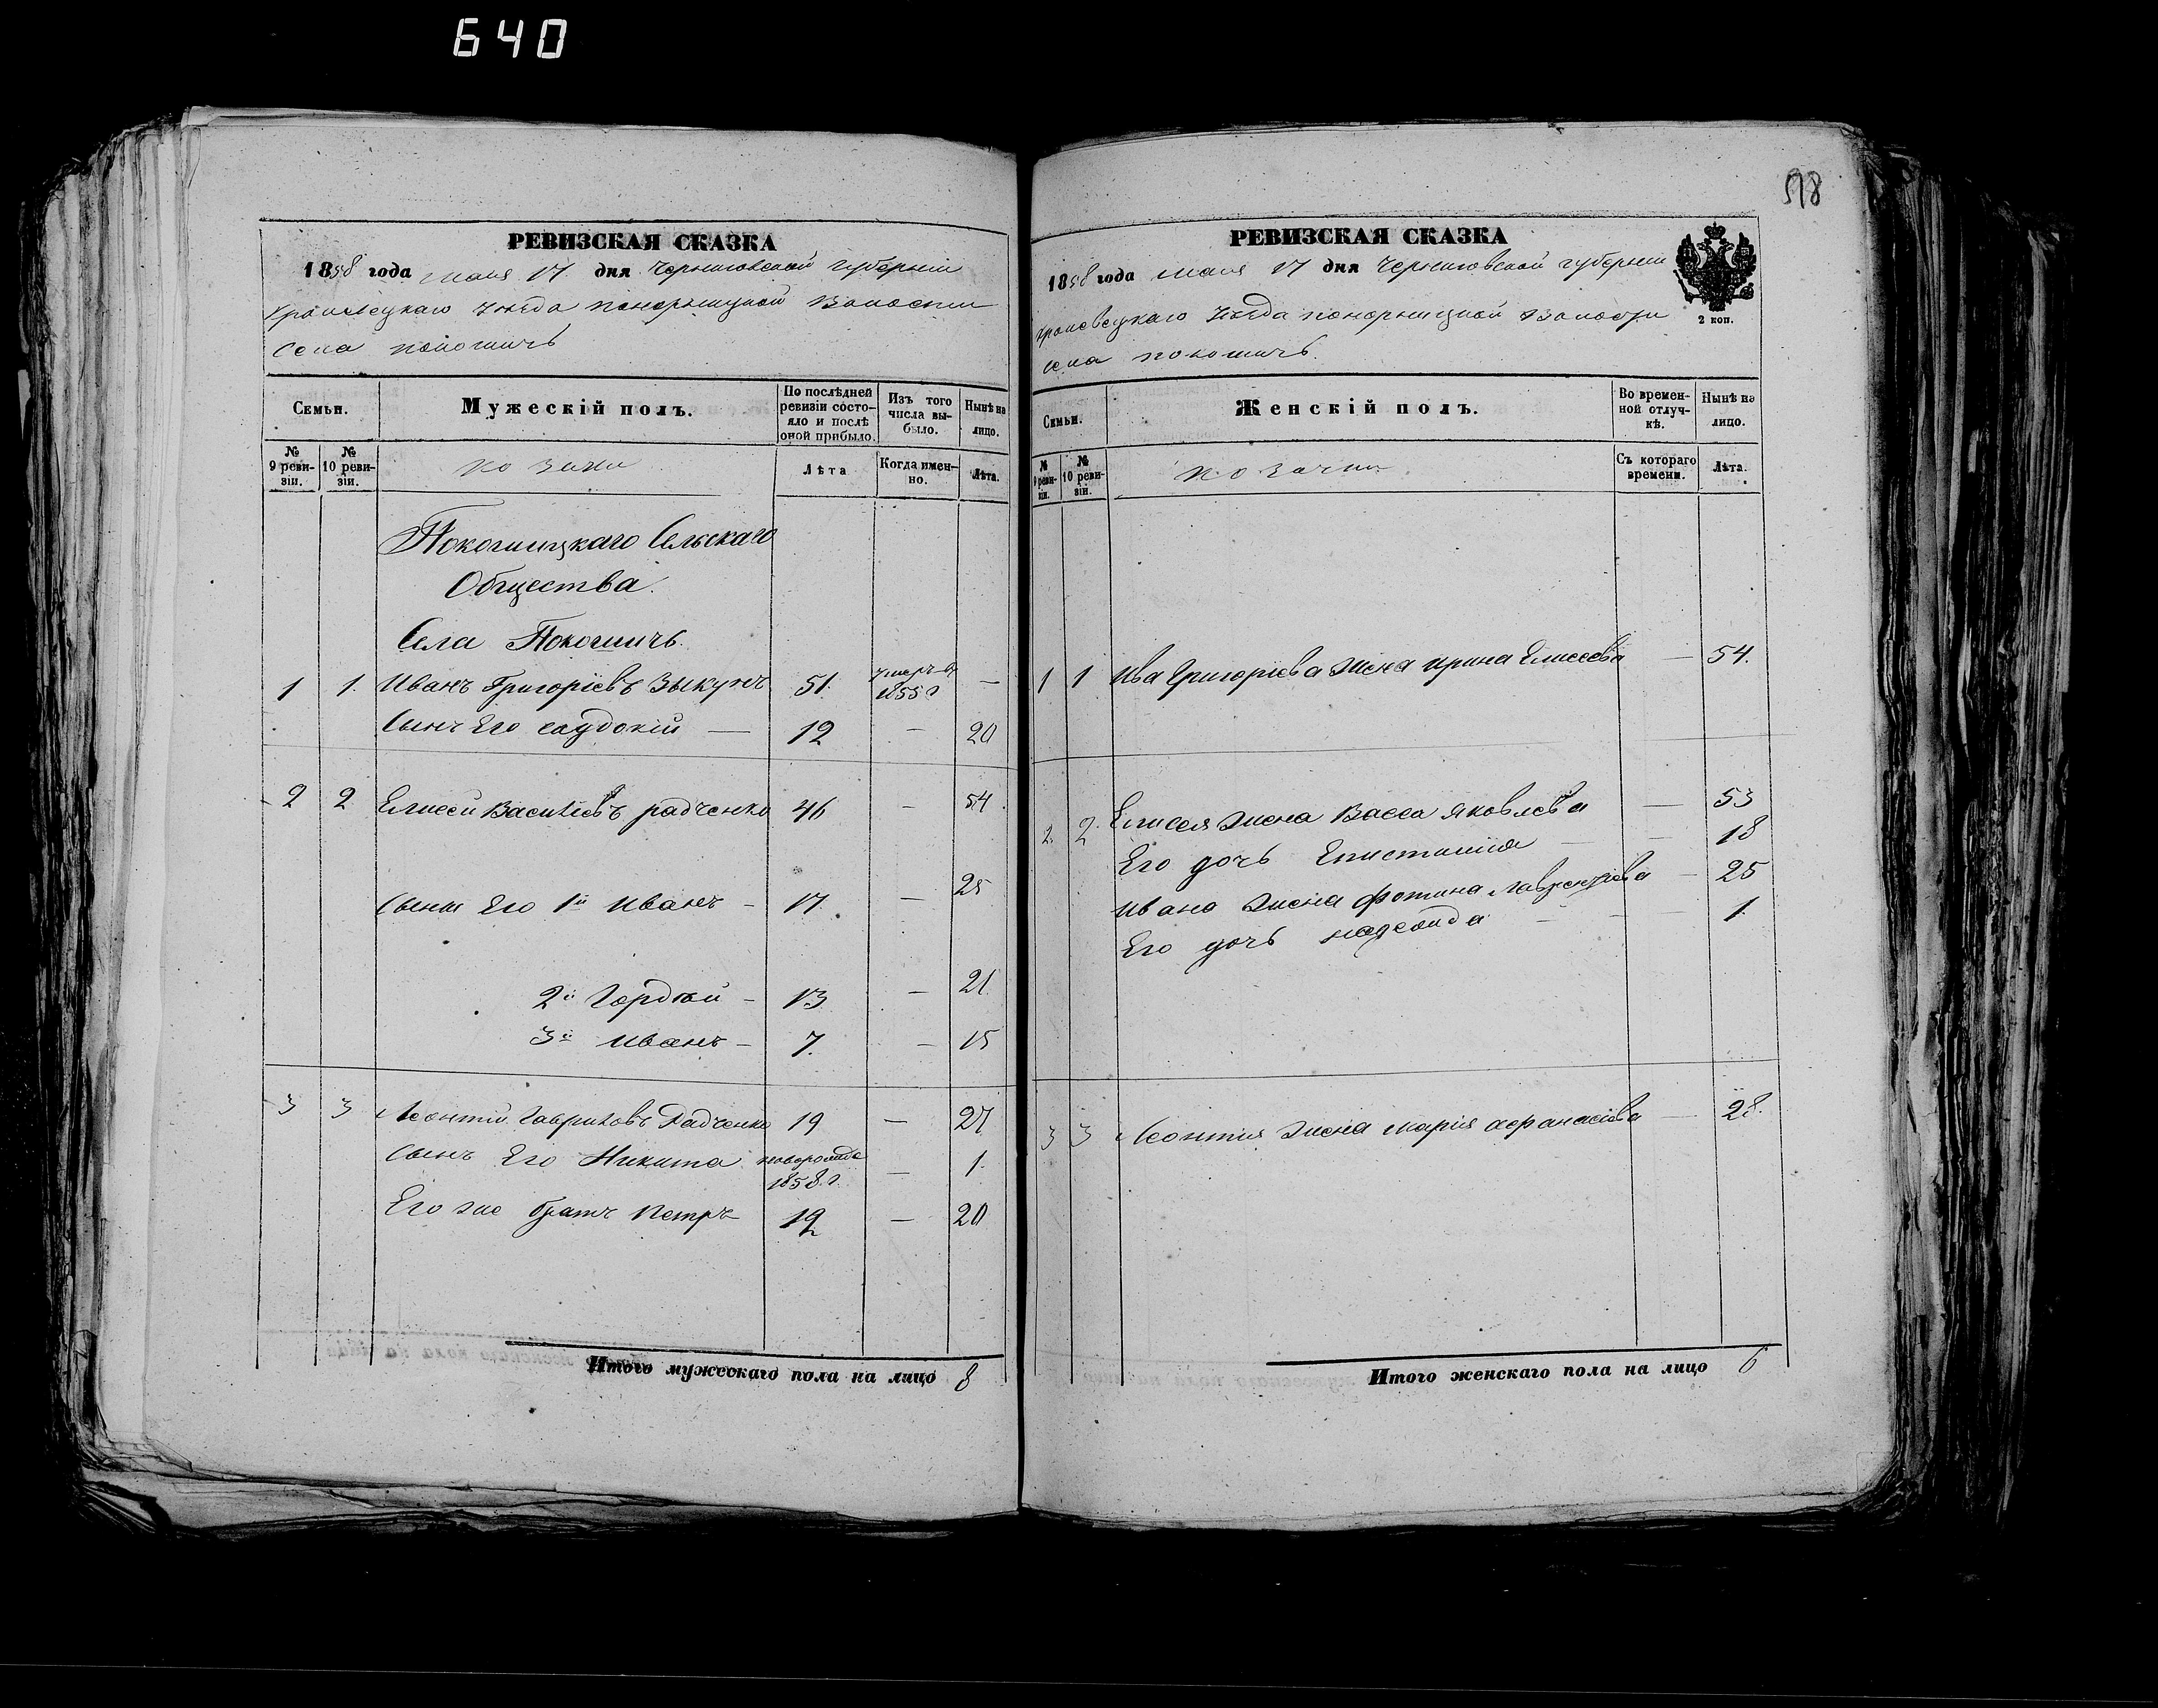 640
518
РЕВИЗСКАЯ СКАЗКА
1858 года мая 17 дня Черниговской губерніи
Кролевецкаго уѣзда Понорницкой волости
села Покошичь
Семьи.
Мужескій полъ.
По послѣдней ревизіи состояло и послѣ оной прибыло.
Изъ того числа выбыло.
Нынѣ на лицо.
№ 9 ревизіи.
№ 10 ревизіи.
козаки
Лѣта
Когда именно.
Лѣта.
Покошицкаго Сельскаго
Общества.
Села Покошичь.
1 1. Иванъ Григоріевъ Зыкунъ 51. умеръ въ 1855 г —
Сынъ Его — 12 — 20
2 2 Елисей Василіевъ радченко 46 — 54.
Сыны Его 1й Иванъ – 17. — 25
2й Гордѣй – 13 — 21
3й Иванъ – 7. — 15
3 3 Леонтій Гавриловъ Радченко 19 — 27
Сынъ Его Никита новорожде 1858 г. — 1.
Его же братъ Петръ 12 — 20
Итого мужескаго пола на лицо 8
РЕВИЗСКАЯ СКАЗКА
1858 года мая 17 дня Черниговской губерніи
Кролевецкаго уѣзда Понорницкой волости
села Покошичь.
2 коп.
Семьи.
Женскій полъ.
Во временной отлучкѣ.
Нынѣ на лицо.
№ 9 ревизіи.
№ 10 ревизіи.
козачки
Съ котораго времени.
Лѣта.
1 1 Ива Григоріева жена Ирина Елисеева — 54.
2. 2. Елисея жена Васса Яковлева — 53
Его дочь Епистимія — 18
Ивана жена Фотина Лаврентіева — 25
Его дочь — 1.
3 3 Леонтія жена Марія Афанасіева — 28.
Итого женскаго пола на лицо 6